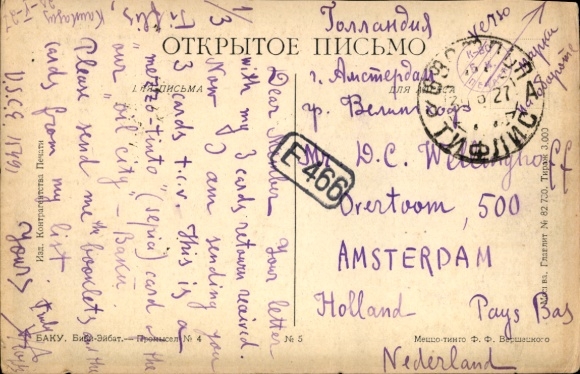 ОТКРЫТОЕ ПИСЬМО
1/3
Dear Member Your letter
with my 3 cards return received.
Now I am sending you
3 cards t.c.v. This is a
"mezzo-tinto" (sepia) card in the
our "oil city" – Baku.
Please send me the booklets and the
cards from my list.
Yours truly
ДЛЯ ПИСЬМА
ДЛЯ АДРЕСА
Голландия
г. Амстердам
гр. Велингоф
Mr D.C. Wellinghoff
Overtoom, 500
AMSTERDAM
Holland Pays Bas
Nederland
марка
на обороте
E-466
ТИФЛИС
27
Изд. Контрагентства Печати
Москва. Главлит № 82.700. Тираж 3.000
БАКУ. Биби-Эйбат. — Промысел № 4
№ 5
Меццо-тинто Ф. Ф. Вершеского